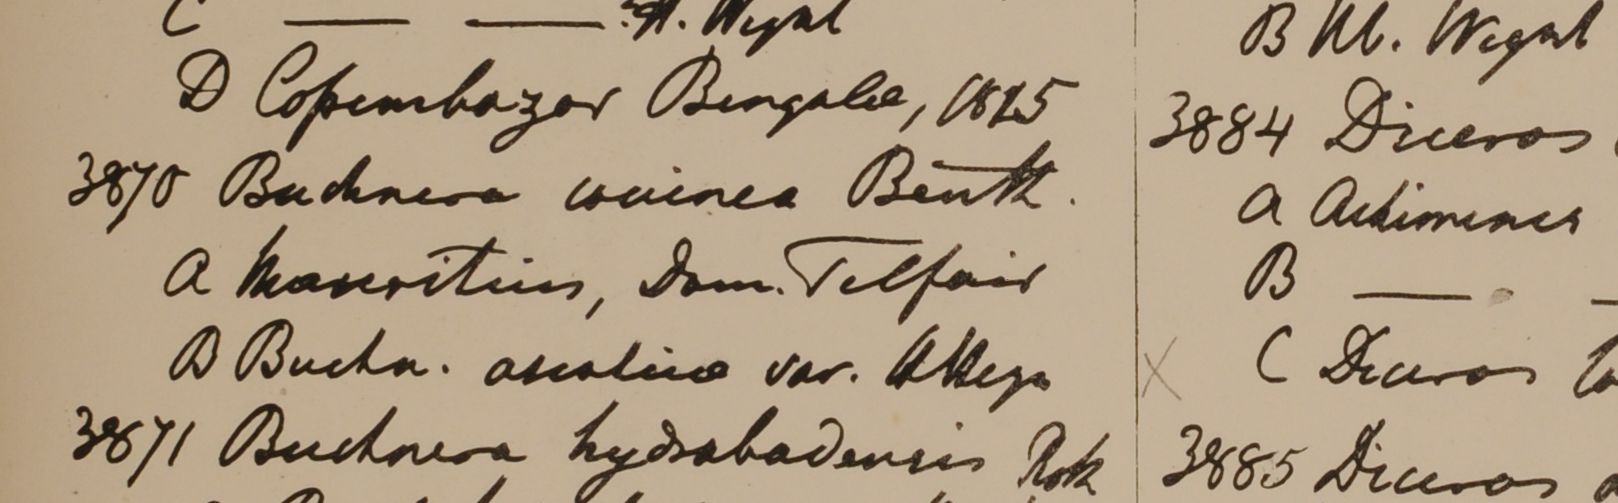 C — — H. Wight
D Cossimbazar Bengalae, 1825
3870 Buchnera coccinea Benth.
A Mauritius, Dom. Telfair
B Buchn. asiatica var.
3871 Buchnera hydrabadensis Roth
B Hb. Wight
3884 Diceros
A Achimenes
B — —
C Diceros
3885 Diceros